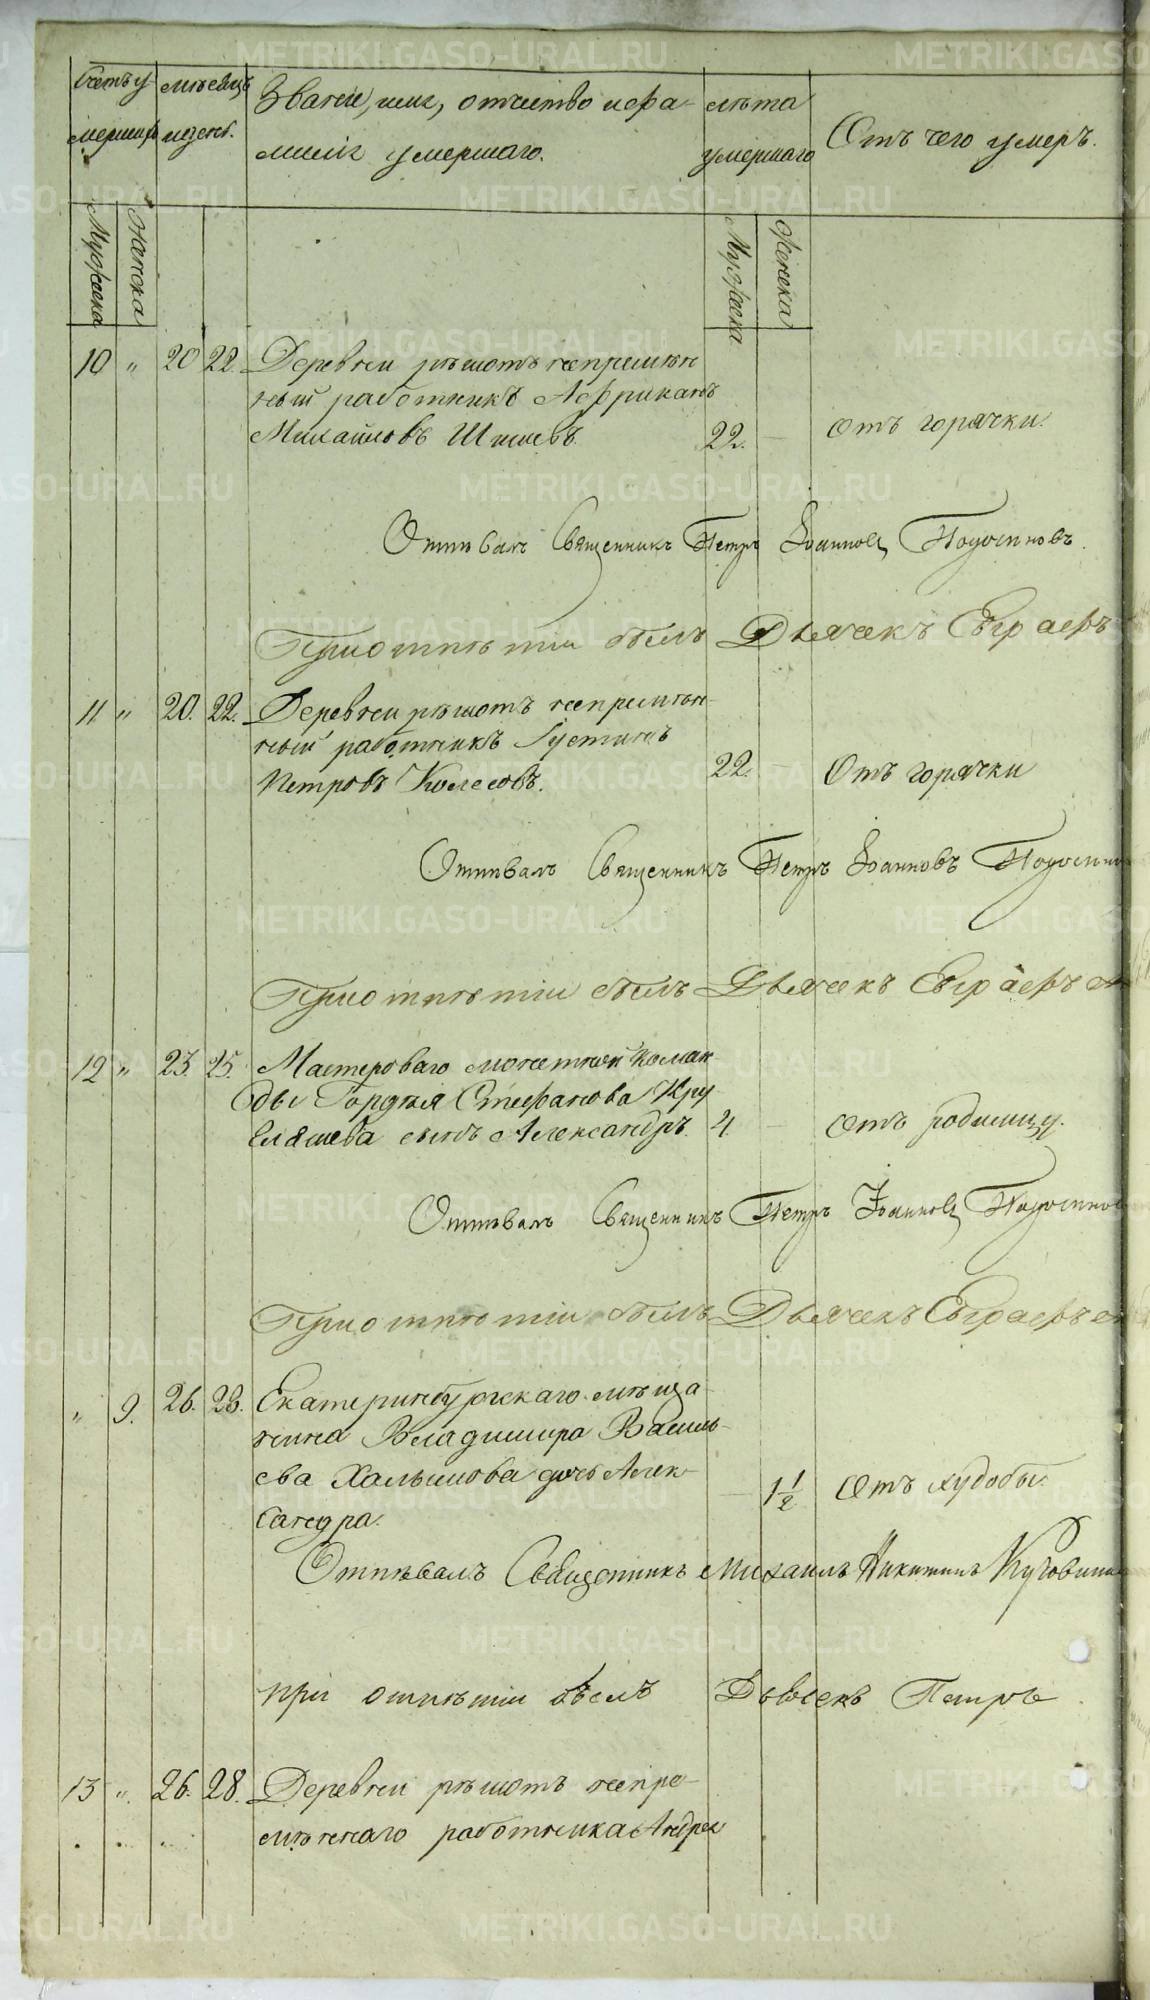 Счетъ у мѣсяцъ Званіе, имя, отчество и фа- лѣта Отъ чего умеръ.
мершихъ и день. миліи умершаго. умершаго
Мужеска Женска Мужеска Женска
10 „ 20 22. Деревни рѣшотъ непремѣн
ный работникъ Африканъ
Михайловъ Шишевъ. 22. — Отъ горячки.
Отпѣвалъ Священникъ Петръ Іоанновъ Подосиновъ.
При отпѣтіи былъ Дьячекъ Евграфъ
11 „ 20. 22. Деревни рѣшотъ непремѣн-
ный работникъ Іустинъ
Петровъ Колесовъ. 22. — Отъ горячки
Отпѣвалъ Священникъ Петръ Іоанновъ Подосинов
При отпѣтіи былъ Дьячекъ Евграфъ
12 „ 23. 25. Мастероваго монетной коман
ды Гордѣя Стефанова Кру
сынъ Александръ. 4 — Отъ родимцу.
Отпѣвалъ Священникъ Петръ Іоанновъ Подосинов
При отпѣтіи былъ Дьячекъ Евграфъ
„ 9. 26. 28. Екатеринбургскаго мѣща
нина Владимира Василь-
ева Халымова дочь Алек-
сандра. — 1 1/2 Отъ худобы.
Отпѣвалъ Священникъ Михаилъ Никитинъ
при отпѣтіи былъ Дьячекъ Петръ
13 „ 26. 28. Деревни рѣшотъ непре-
мѣннаго работника Андрея
METRIKI.GASO-URAL.RU